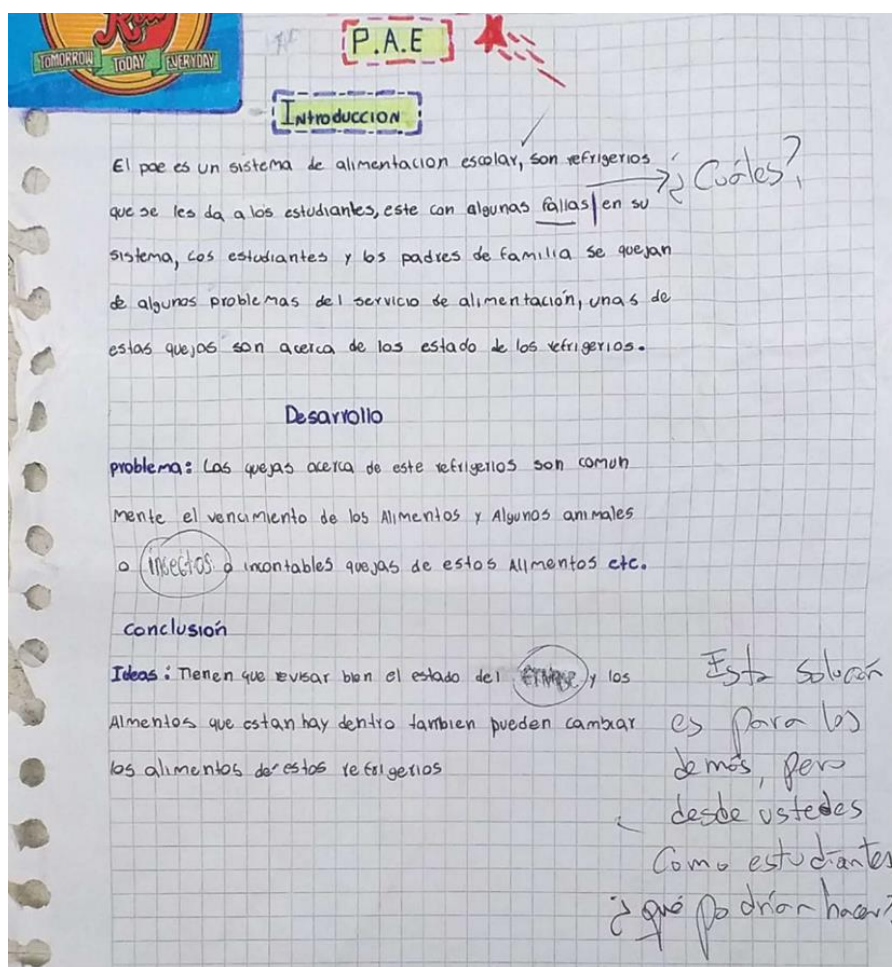 TOMORROW TODAY EVERYDAY
P.A.E
INtroduccion
El pae es un sistema de alimentacion escolar, son refrigerios
¿Cuáles?
que se les da a los estudiantes, este con algunas fallas en su
sistema, Los estudiantes y los padres de familia se quejan
de algunos problemas del servicio de alimentación, unas de
estas quejas son acerca de los estado de los refrigerios.
Desarrollo
problema: Las quejas acerca de este refrigerios son comun
mente el vencimiento de los Alimentos y Algunos animales
o insectos o incontables quejas de estos Alimentos etc.
conclusión
Ideas: Tienen que revisar bien el estado del y los
Alimentos que estan hay dentro tambien pueden cambiar
los alimentos de estos refrigerios
Esta solución
es para los
demás, pero
desde ustedes
como estudiantes
¿qué podrían hacer?